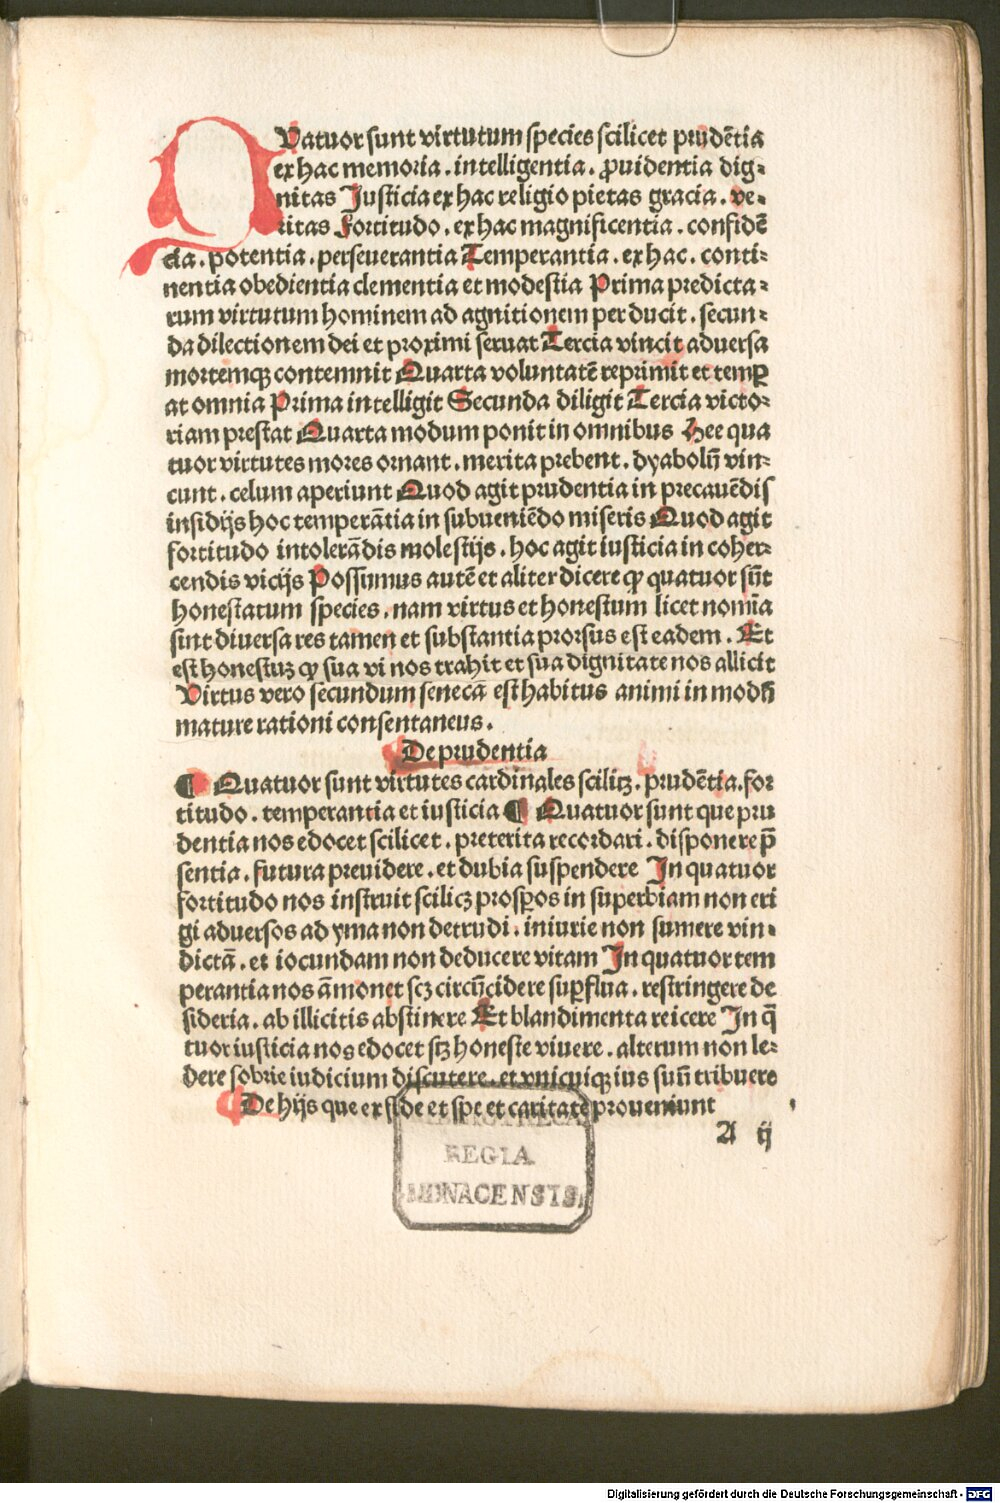 QVatuor sunt virtutum species scilicet prudētia
ex hac memoria . intelligentia . ꝓuidentia dig⸗
nitas Iusticia ex hac religio pietas gracia . ve⸗
ritas Fortitudo . ex hac magnificentia . confidē
cia . potentia . perseuerantia Temperantia . ex hac . conti⸗
nentia obedientia clementia et modestia Prima predicta⸗
rum virtutum hominem ad agnitionem per ducit . secun⸗
da dilectionem dei et proximi seruat Tercia vincit aduersa
mortemqꝫ contemnit Quarta voluntatē reprimit et temꝑ
at omnia Prima intelligit Secunda diligit Tercia victo⸗
riam prestat Quarta modum ponit in omnibus Hee qua
tuor virtutes mores ornant . merita prebent . dyabolū vin⸗
cunt . celum aperiunt Quod agit prudentia in precauēdis
insidijs hoc temperātia in subueniēdo miseris Quod agit
fortitudo intolerādis molestijs . hoc agit iusticia in coher⸗
cendis vicijs Possumus autē et aliter dicere ꝙ quatuor sūt
honestatum species . nam virtus et honestum licet nomīa
sint diuersa res tamen et substantia prorsus est eadem . Et
est honestuꝫ ꝙ sua vi nos trahit et sua dignitate nos allicit
Virtus vero secundum senecā est habitus animi in modū
mature rationi consentaneus .
De prudentia
¶ Quatuor sunt virtutes cardinales scilicꝫ . prudētia . for
titudo . temperantia et iusticia ¶ Quatuor sunt que pru
dentia nos edocet scilicet . preterita recordari . disponere p̄
sentia . futura preuidere . et dubia suspendere In quatuor
fortitudo nos instruit scilicꝫ prosꝑos in superbiam non eri
gi aduersos ad yma non detrudi . iniurie non sumere vin⸗
dictā . et iocundam non deducere vitam In quatuor tem
perantia nos āmonet scꝫ circūcidere suꝑflua . restringere de
sideria . ab illicitis abstinere Et blandimenta reicere In q̄
tuor iusticia nos edocet scꝫ honeste viuere . alterum non le⸗
dere sobrie iudicium discutere . et vnicuiqꝫ ius suū tribuere
De hijs que ex fide et spe et caritate proueniunt
A ij
BIBLIOTHECA
REGIA
MONACENSIS.
Digitalisierung gefördert durch die Deutsche Forschungsgemeinschaft - DFG